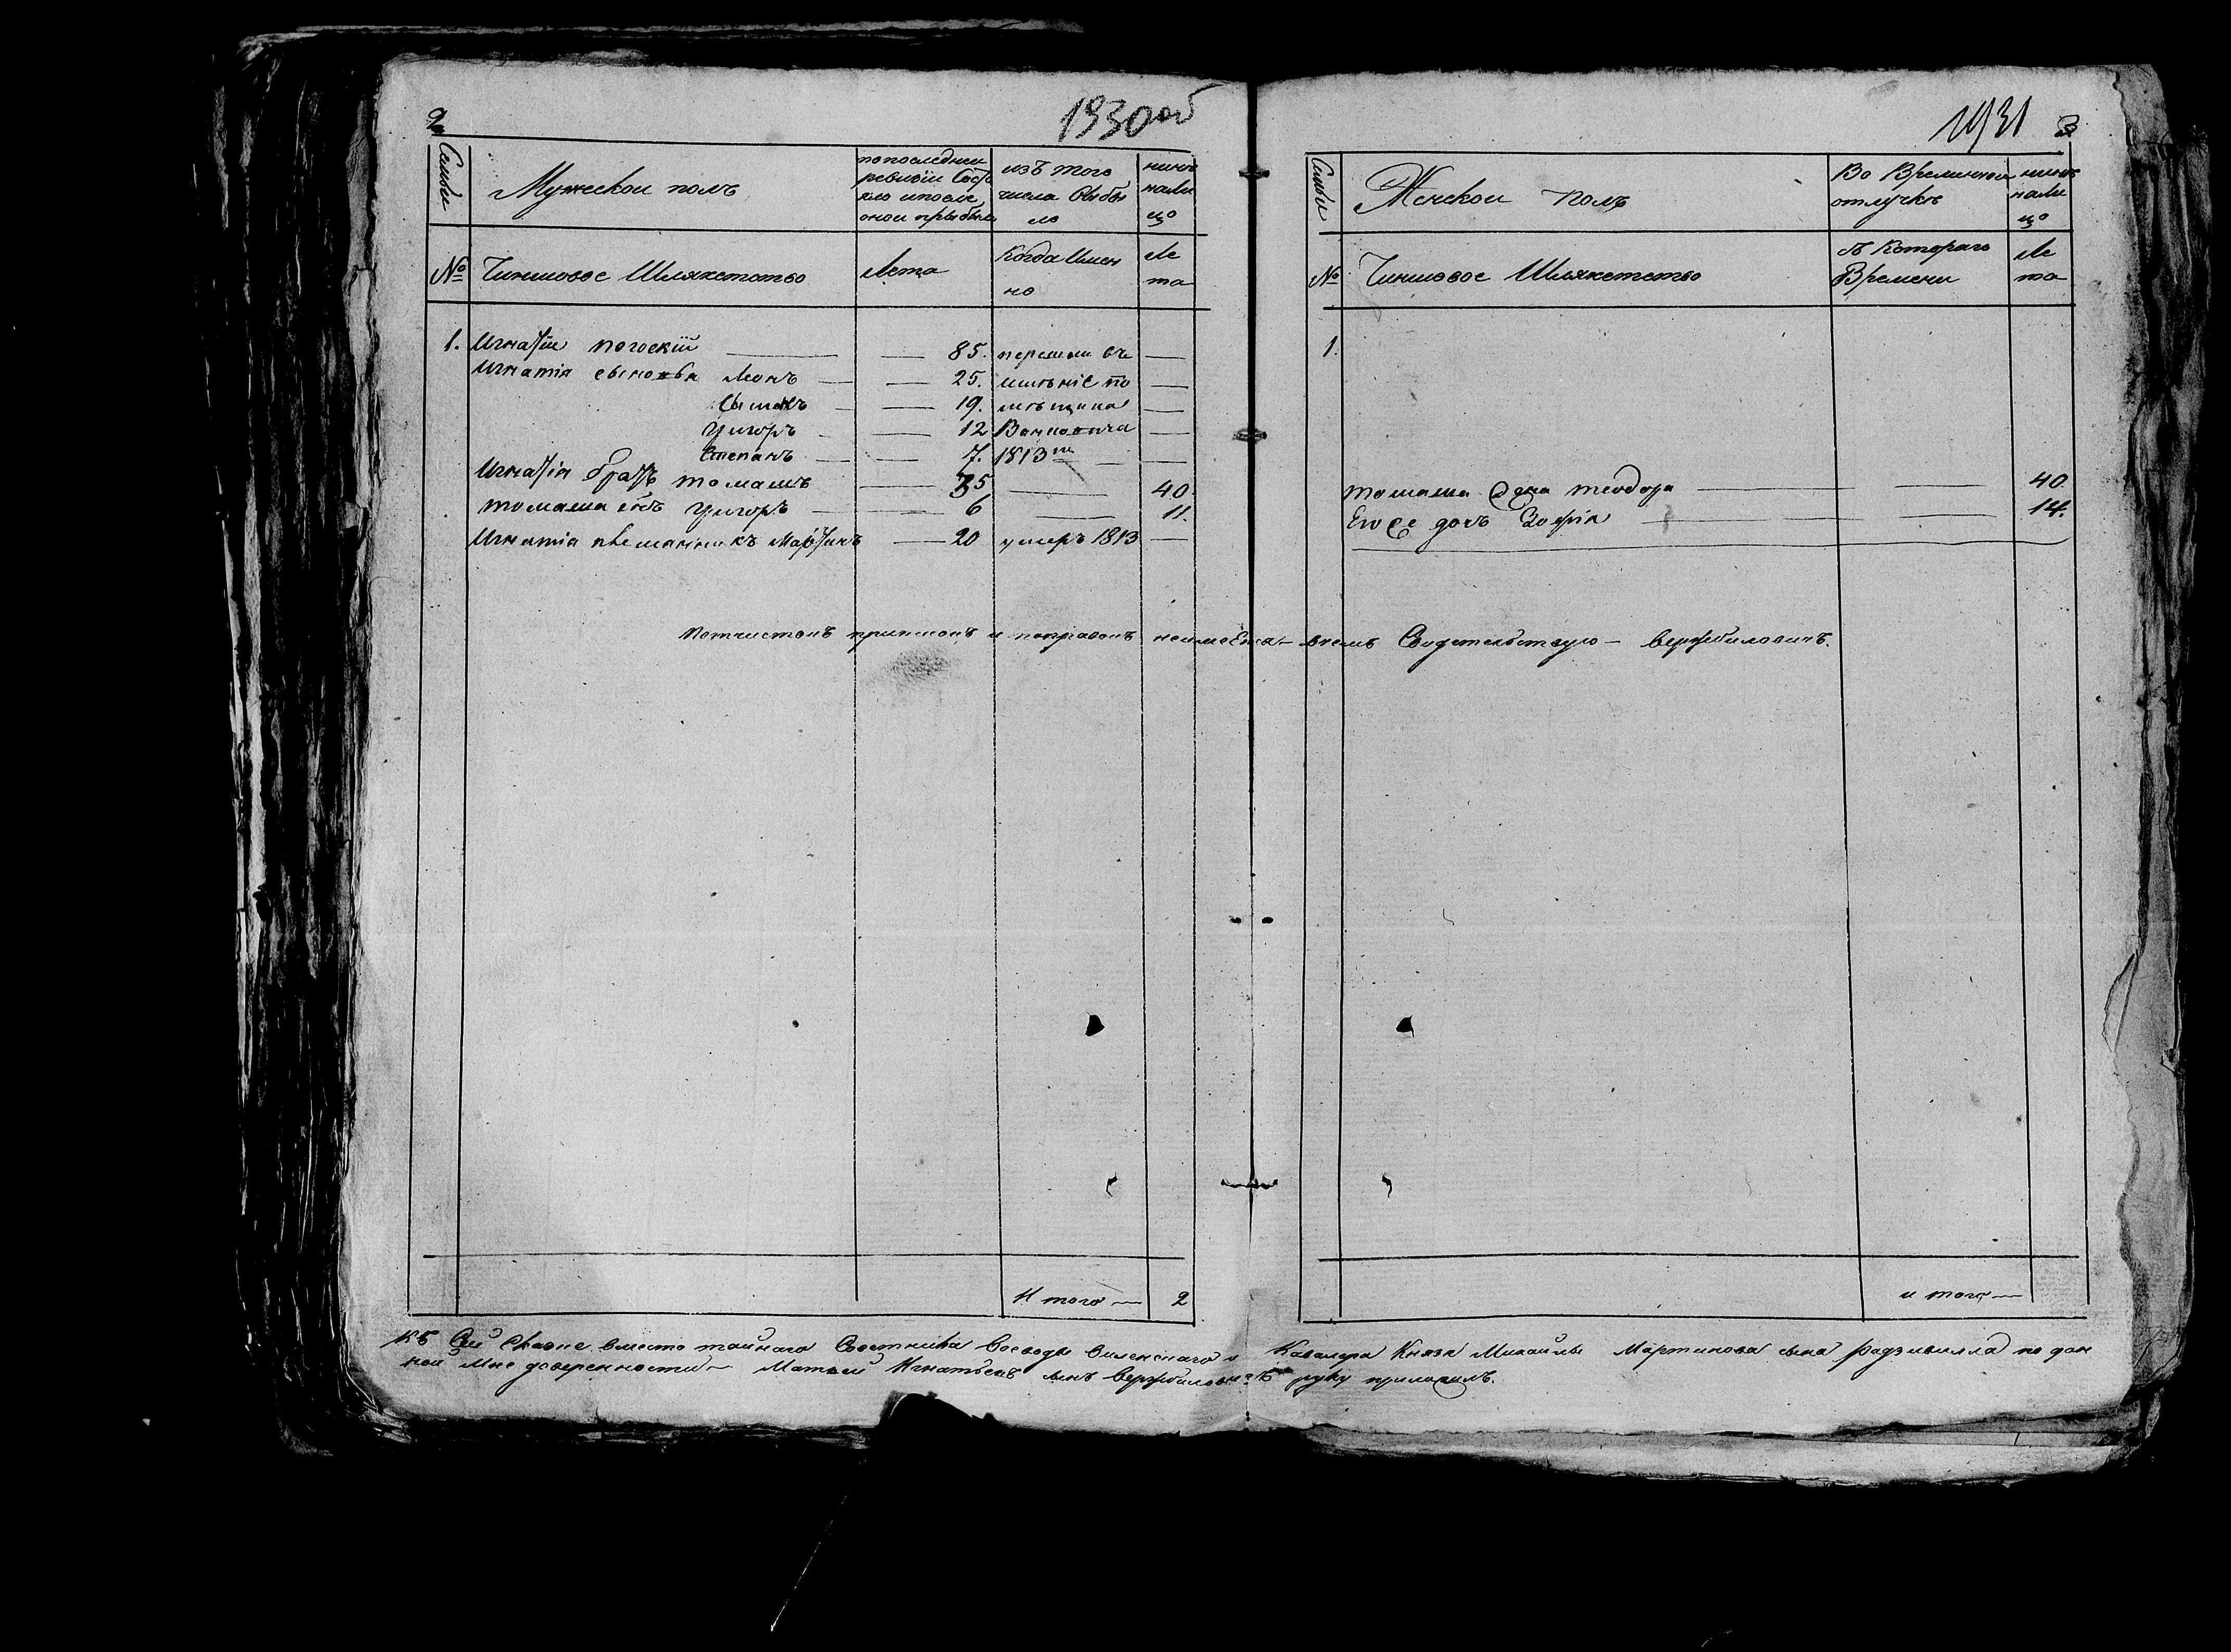 2
1930об
Семьи
Мужескои полъ
попоследнеи
ревизіи Состо
яло ипосле
онои прыбыло
изъ того
числа Выбы
ло
нине
нали
цо
№
Чиншовое Шляхетство
Лета
Когда Имен
но
Ле
та
1. Игнатіи погоскіи — 85. перешли въ —
Игнатія сыновья Леонъ — 25. имѣніе по —
Сымонъ — 19. мѣщика —
Григоръ — 12 Ваньковича —
Степанъ — 7. 1813го —
Игнатія братъ томашъ — 35 — 40
томаша сынъ Григоръ — 6 — 11.
Игнатія племянникъ Мартинъ — 20 умеръ 1813 —
И того — 2
1931 3
Семьи
Женскои полъ
Во Временнои
отлучкѣ
нине
нали
цо
№
Чиншовое Шляхетство
Съ Котораго
Времени
Ле
та
1.
томаша Жена теодора — — 40
Его же дочъ Зофія — — 14.
Потчистокъприписокъ и поправокъ неимеется — вчемъ Свидетельствую — Вержбиловичъ.
и того —
Къ Сей Сказке вместо тайнаго Советника Воеводы Виленскаго и Кавалера Князя Михайлы Мартинова сына Радзивилла по дан
ной Мне доверенности — Матвей Игнатьевъ сынъ Вержбиловичъ руку приложилъ.